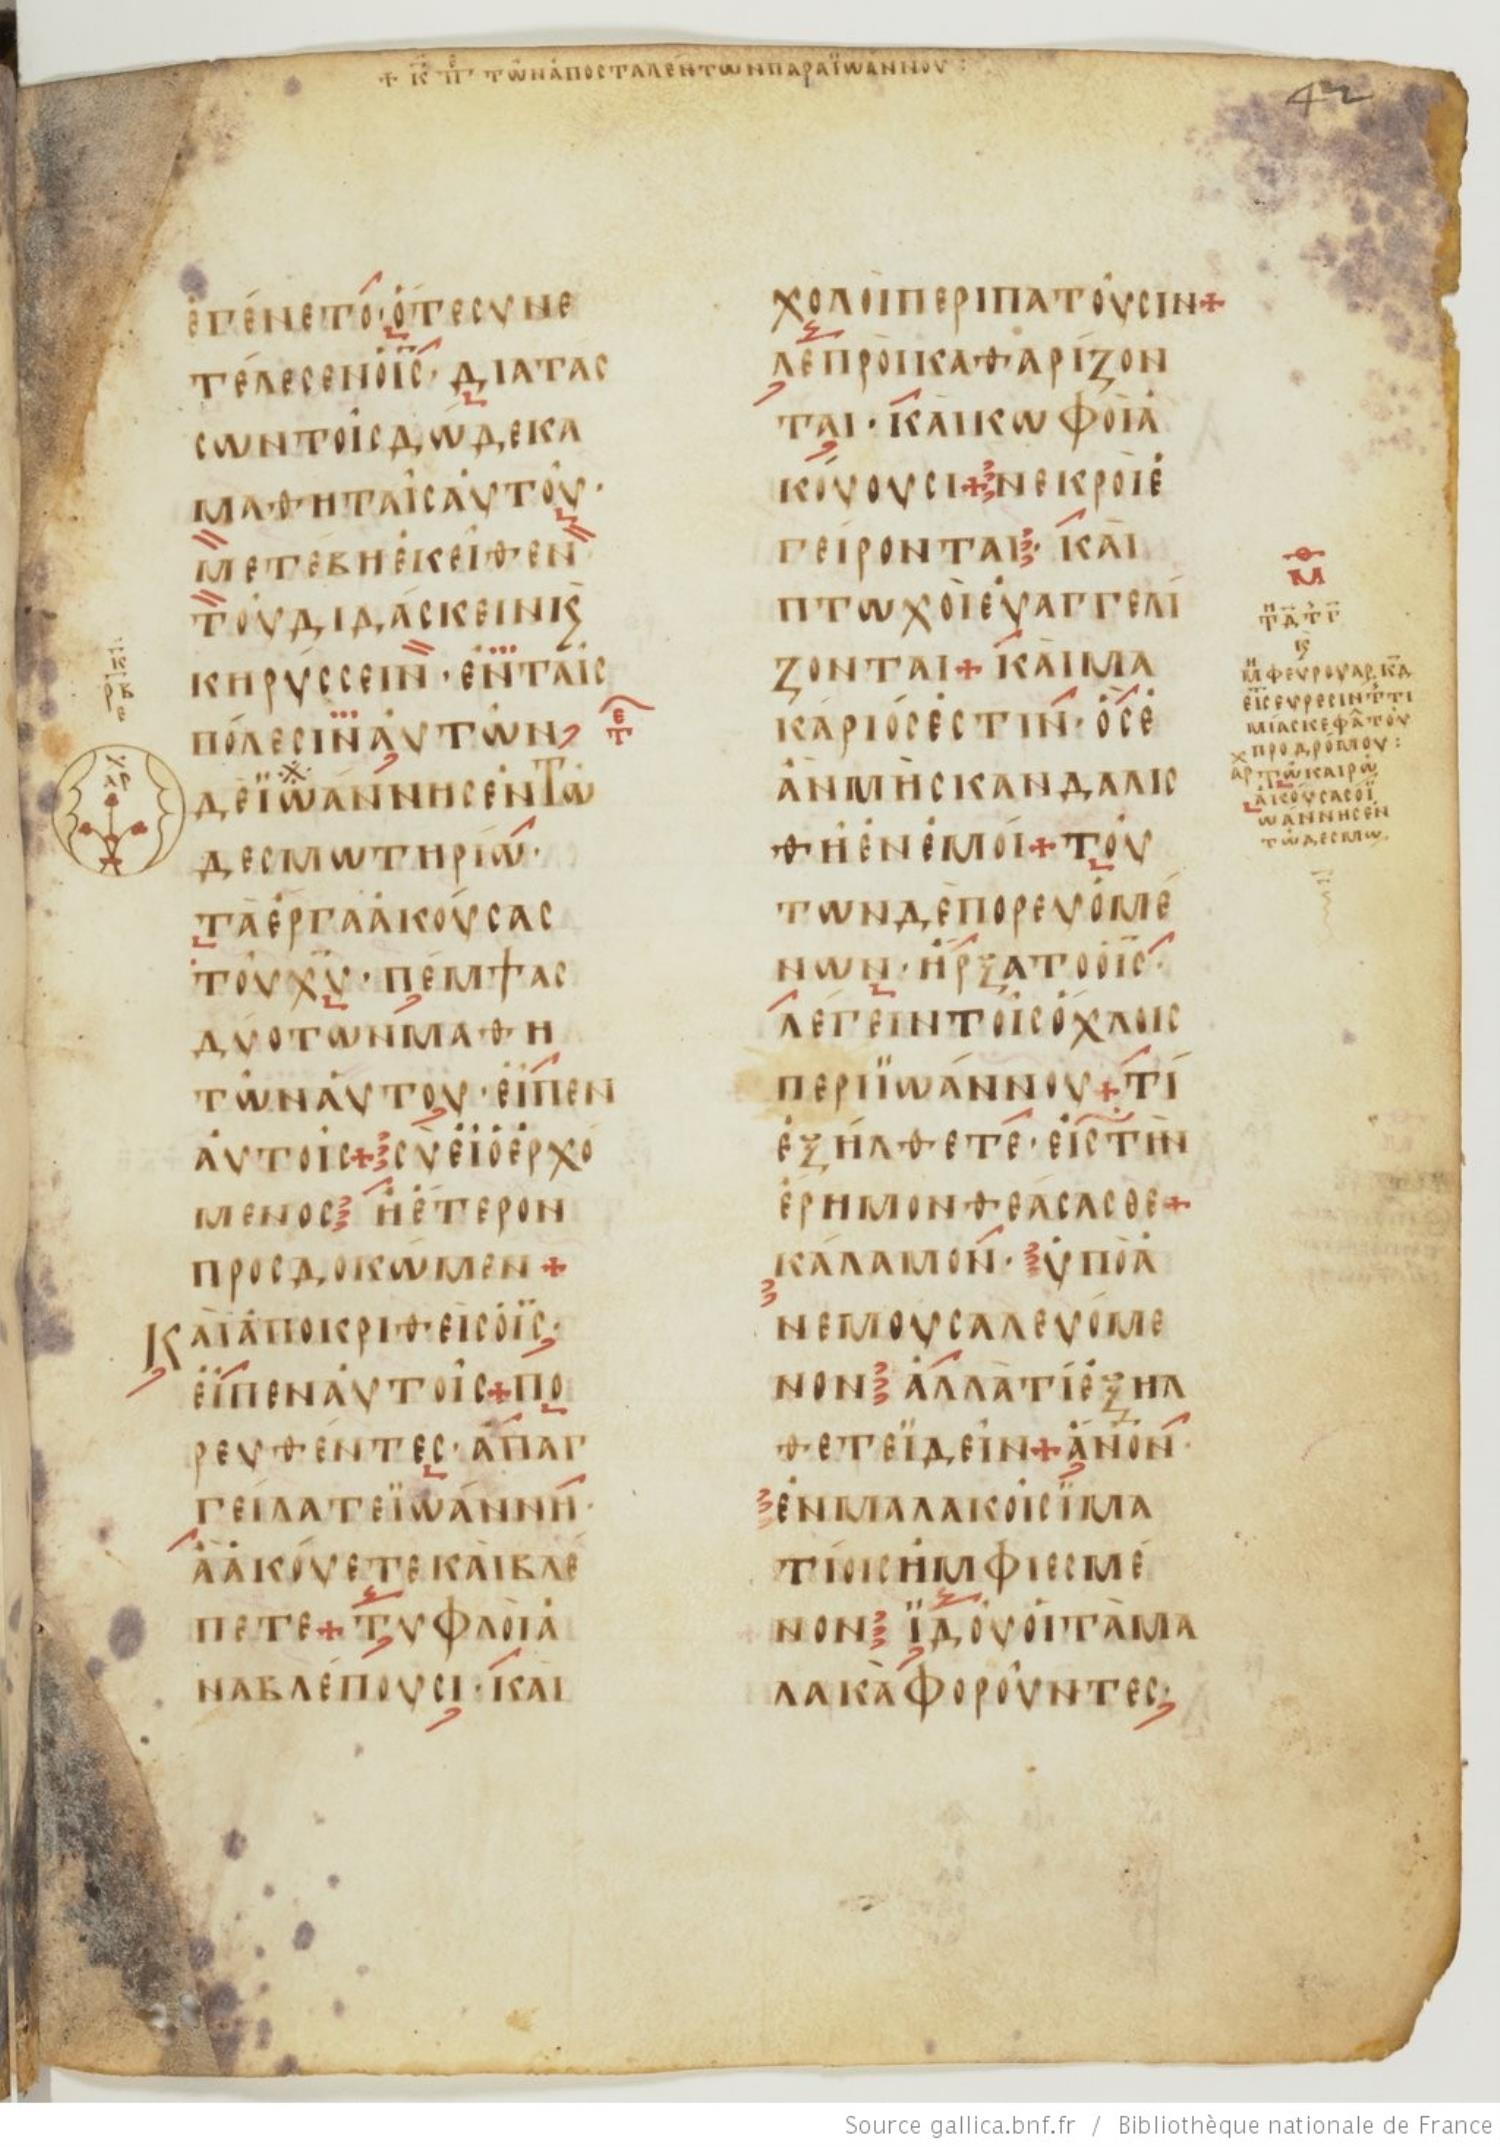 + κ̅ε̅ τῶν ἀποσταλέντων παρὰ ϊωάννου :
42
ἐγένετο· ὅτε συνε
τέλεσεν ὁ ι̅ς̅· διατάσ
σων τοῖς δώδεκα
μαθηταῖς αὐτοῦ·
μετέβη ἐκεῖθεν
τοῦ διδάσκειν κ̣
κηρύσσειν· ἐν ταῖς
πόλεσιν αὐτῶν
δὲ ϊωάννης ἐν τῶ
δεσμωτηρίω·
τὰ ἔργα ἀκούσας
τοῦ χ̅υ̅· πέμψας
δύο τῶν μαθη
τῶν αὐτοῦ· εἶπεν
αὐτοῖς + σὺ εἶ ὁ ἐρχό
μενος ἢ ἕτερον
προσδοκῶμεν +
Καὶ ἀποκριθεὶς ὁ ι̅ς̅·
εἶπεν αὐτοῖς + πο
ρευθέντες· ἀπαγ
γείλατε ϊωάννη·
ἃ ἀκούετε καὶ βλέ
πετε + τυφλοὶ ἀ
ναβλέπουσι· καὶ
χολοὶ περιπατοῦσιν +
λεπροὶ καθαρίζον
ται· καὶ κωφοὶ ἀ
κούουσι + νεκροὶ ἐ
γείρονται· καὶ
πτωχοὶ εὐαγγελί
ζονται + καὶ μα
κάριός ἐστιν· ὃς ἐ
ὰν μὴ σκανδαλισ
θῆ ἐν ἐμοί + τού
των δὲ πορευομέ
νων· ἤρξατο ὁ ι̅ς̅·
λέγειν τοῖς ὄχλοις
περὶ ϊωάννου + τί
ἐξήλθετε· εἰς τὴν
ἔρημον θεάσασθε +
κάλαμον· ὑπὸ ἀ
νέμου σαλευόμε
νον ἀλλὰ τί ἐξήλ
θετε ϊδεῖν + α̅ν̅ο̅ν̅·
ἐν μαλακοῖς ϊμα
τίοις ἠμφιεσμέ
νον ϊδοὺ οἱ τὰ μα
λακὰ φοροῦντες·
μ̅ φευρουαρ κ̅δ̅
εἰς εὕρεσιν τ τι
μίας κεφα τοῦ
προδρόμου :
τῶ καιρῶ
ἀκούσας ὁ ϊ
ωάννης ἐν
τῶ δεσμω
Source gallica.bnf.fr / Bibliothèque nationale de France